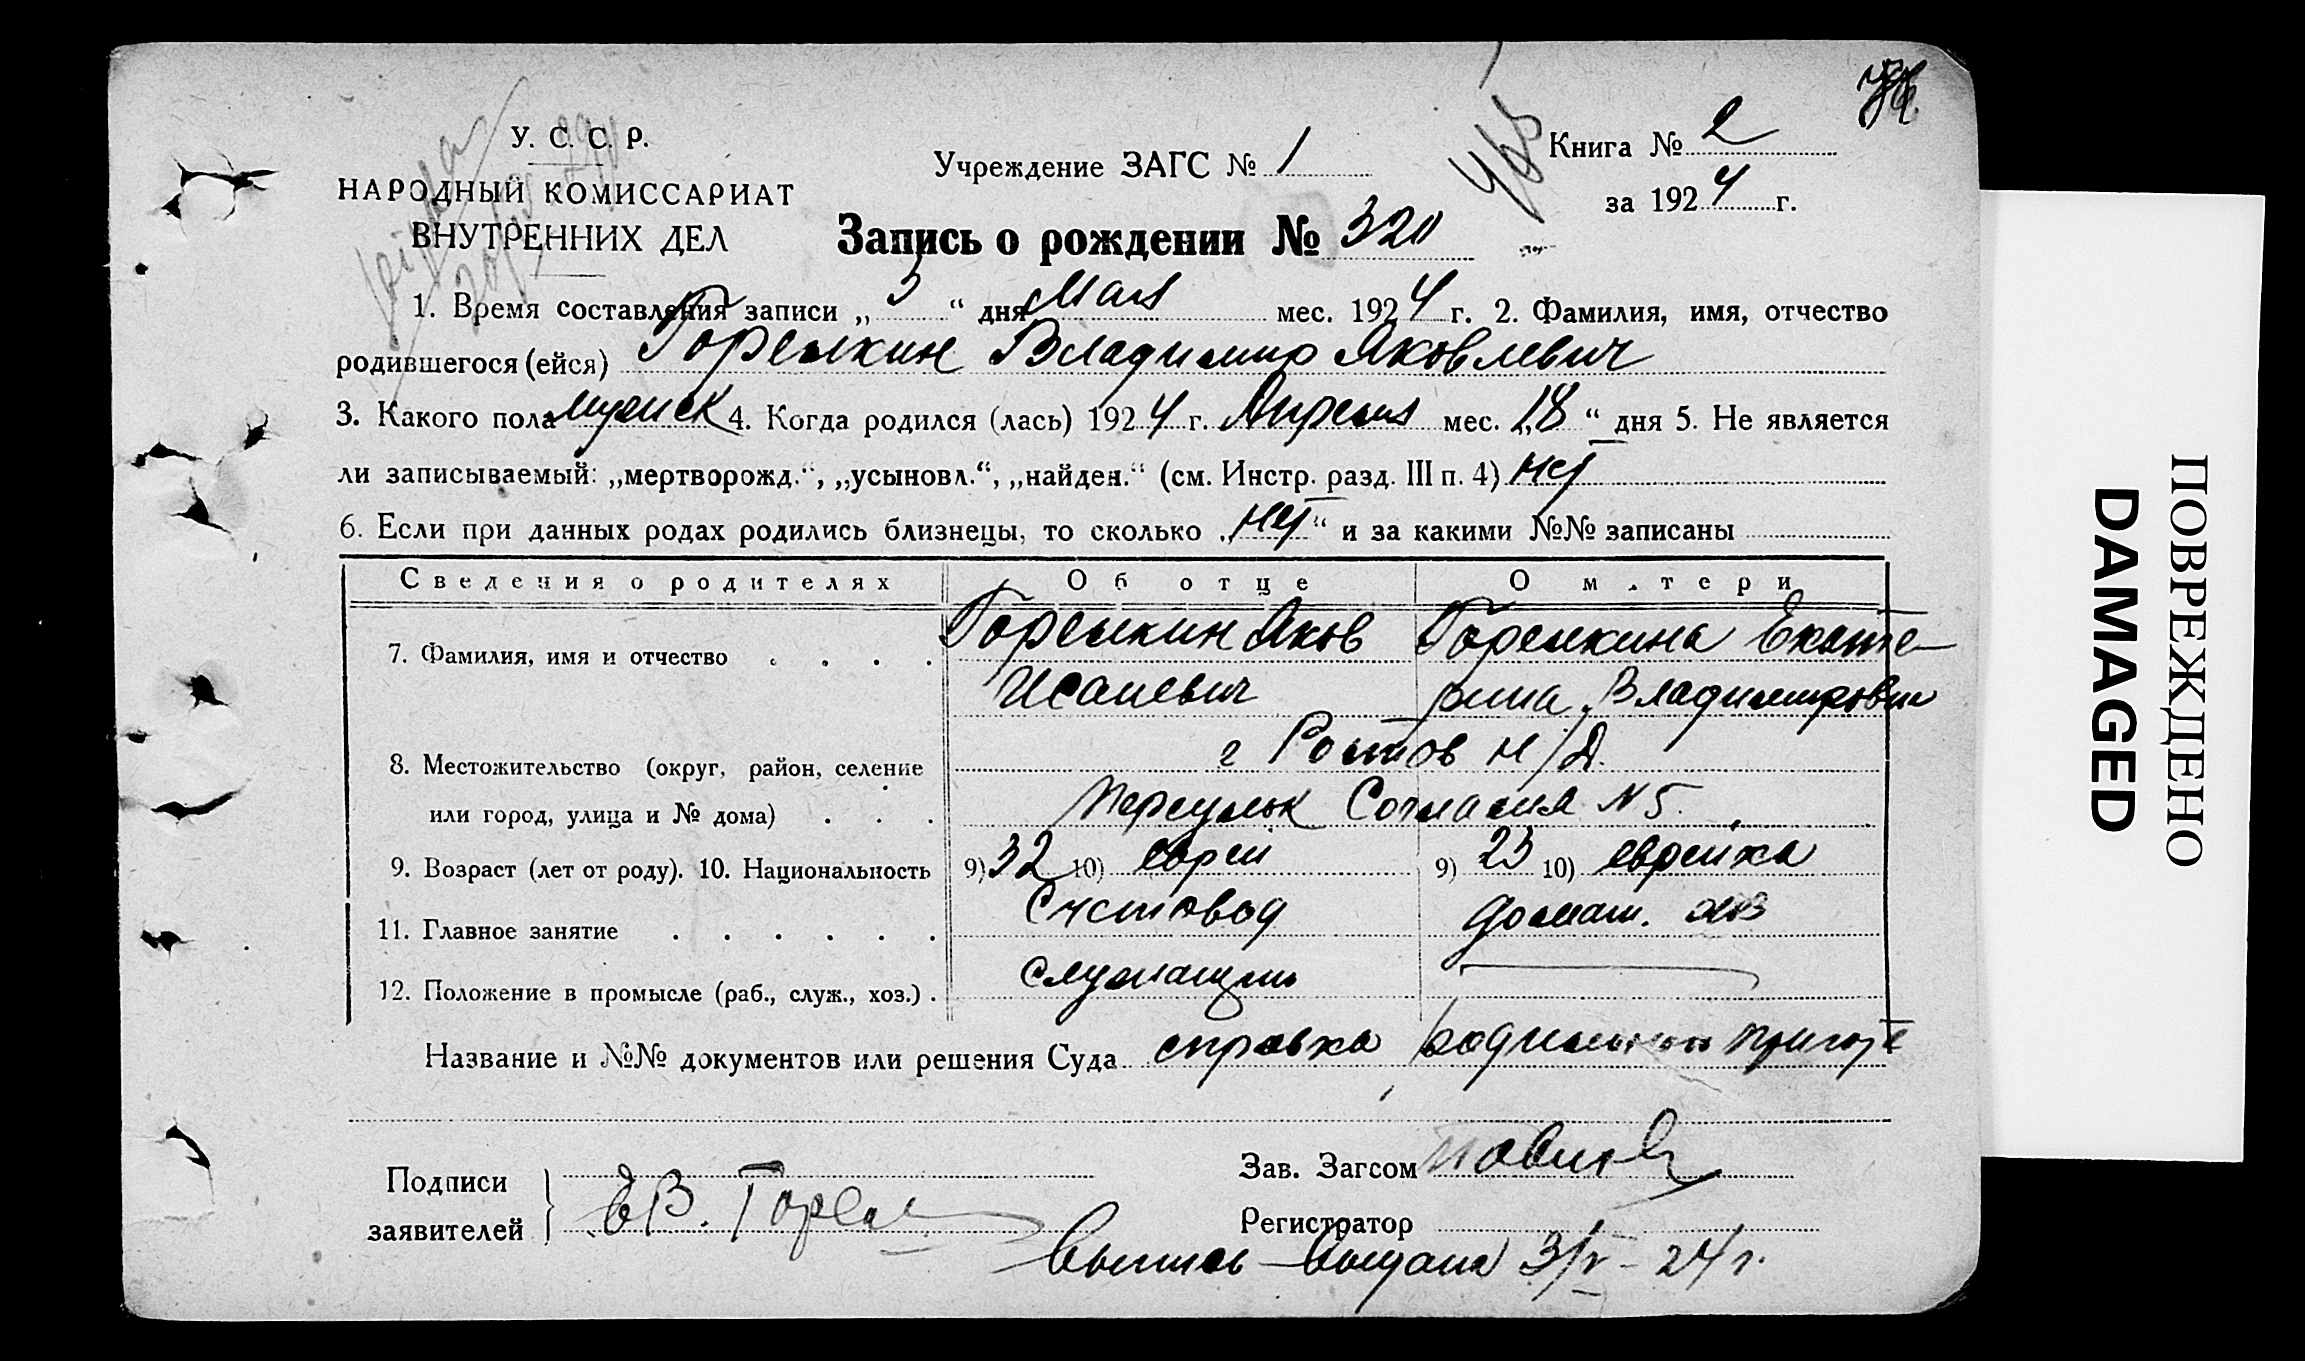 У. С. С. Р.
НАРОДНЫЙ КОМИССАРИАТ
ВНУТРЕННИХ ДЕЛ
Учреждение ЗАГС № 1
Книга № 2
за 1924 г.
Запись о рождении № 320
1. Время составления записи „ 3 “ дня Мая мес. 1924 г. 2. Фамилия, имя, отчество
родившегося (ейся) Горелкин Владимир Яковлевич
3. Какого пола мужск 4. Когда родился (лась) 1924 г. Апреля мес. „18 “ дня 5. Не является
ли записываемый: „мертворожд.“, „усыновл.“, „найден.“ (см. Инстр. разд. III п. 4) нет
6. Если при данных родах родились близнецы, то сколько „нет“ и за какими №№ записаны
Сведения о родителях Об отце О м.тери
7. Фамилия, имя и отчество . . . . Горелкин Яков Горелкина Екате-
Исаиевич рина Владимировна
8. Местожительство (округ, район, селение г Ростов н/Д.
или город, улица и № дома) . . . Переулок Согласия N 5.
9. Возраст (лет от роду). 10. Национальность 9) 32 10) еврей 9) 23 10) еврейка
11. Главное занятие . . . . . . Счетовод домаш. хоз
12. Положение в промысле (раб., служ., хоз.) . служащий
Название и №№ документов или решения Суда справка родильного приюта
Подписи
заявителей
ЕВ.
Зав. Загсом
Регистратор
Выпись выдана 3/V - 24 г.
ПОВРЕЖДЕНО
DAMAGED